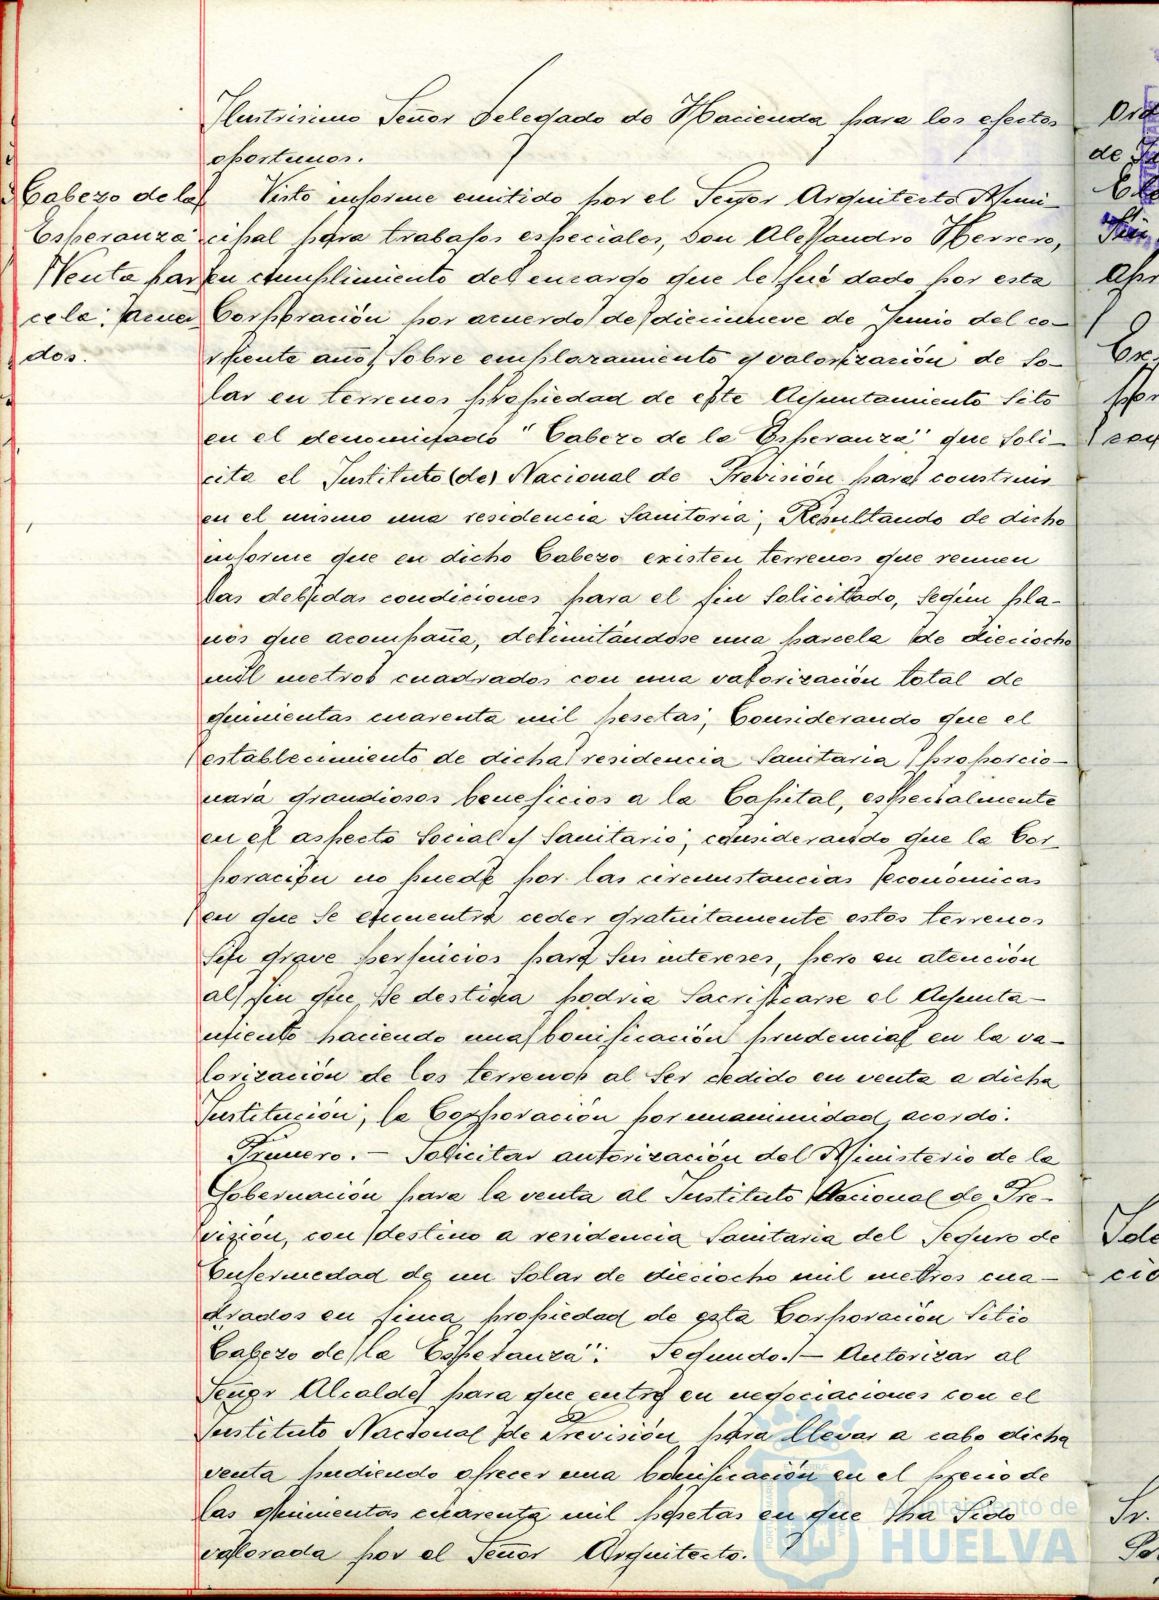 Ilustrisimo Señor Delegado de Hacienda para los efectos
oportunos.
Cabezo de la
Esperanza
Venta par
cela: Acuer
dos.
Visto informe emitido por el Señor Arquitecto Muni-
cipal para trabajos especiales, Don Alejandro Herrero,
en cumplimiento del encargo que le fué dado por esta
Corporación por acuerdo de diecinueve de Junio del co-
rriente año, sobre emplazamiento y valorización de so-
lar en terrenos propiedad de este Ayuntamiento sito
en el denominado "Cabezo de la Esperanza" que soli-
cita el Instituto (de) Nacional de Previsión para construir
en el mismo una residencia Sanitaria; Resultando de dicho
informe que en dicho Cabezo existen terrenos que reunen
las debidas condiciones para el fin solicitado, según pla-
nos que acompaña, delimitándose una parcela de dieciocho
mil metros cuadrados con una valorización total de
quinientas cuarenta mil pesetas; Considerando que el
establecimiento de dicha residencia Sanitaria proporcio-
nará grandiosos beneficios a la Capital, especialmente
en el aspecto Social y Sanitario; considerando que la Cor-
poración no puede por las circunstancias económicas
en que se encuentra ceder gratuitamente estos terrenos
sin grave perjuicios para sus intereses, pero en atención
al fin que se destina podria Sacrificarse el Ayunta-
miento haciendo una bonificación prudencial en la va-
lorización de los terrenos al ser cedido en venta a dicha
Institución; la Corporación por unanimidad, acordó:
Primero.- Solicitar autorización del Ministerio de la
Gobernación para la venta al Instituto Nacional de Pre-
visión, con destino a residencia Sanitaria del Seguro de
Enfermedad de un Solar de dieciocho mil metros cua-
drados en finca propiedad de esta Corporación Sitio
Cabezo de la Esperanza": Segundo.- Autorizar al
Señor Alcalde para que entre en negociaciones con el
Instituto Nacional de Previsión para llevar a cabo dicha
venta pudiendo ofrecer una bonificación en el precio de
las quinientas cuarenta mil pesetas en que ha Sido
valorada por el Señor Arquitecto.
Ayuntamiento de
HUELVA